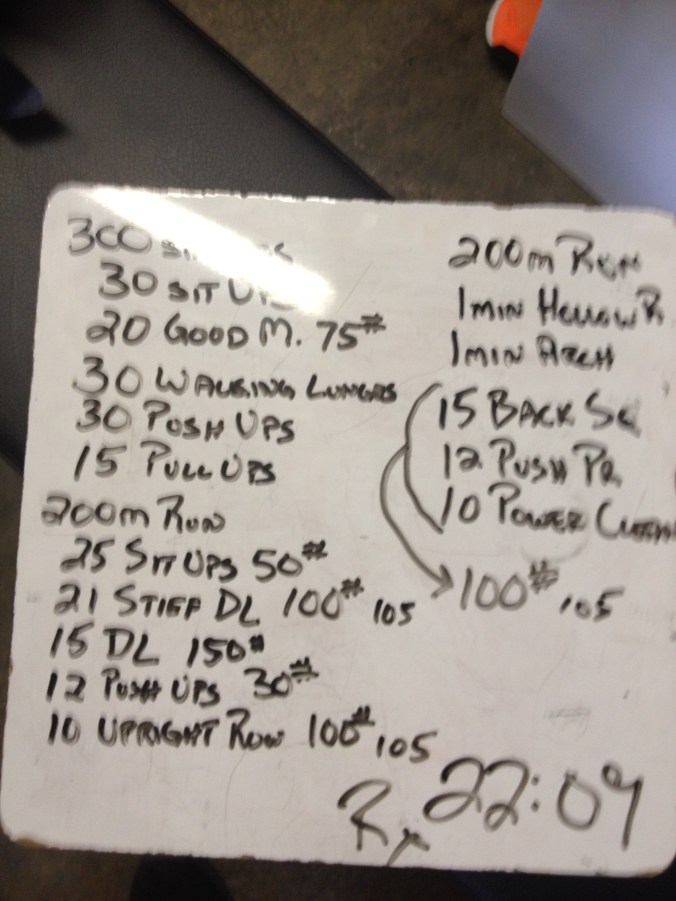 300
30 SIT UPS
20 GOOD M. 75#
30 WALKING LUNGES
30 PUSH UPS
15 PULL UPS
200m RUN
25 SIT UPS 50#
21 STIFF DL 100# 105
15 DL 150#
12 PUSH UPS 30#
10 UPRIGHT ROW 100# 105
200m RUN
1 MIN HOLLOW R
1 MIN ARCH
15 BACK SQ
12 PUSH PR.
10 POWER CLEAN
100# 105
Rx 22:09